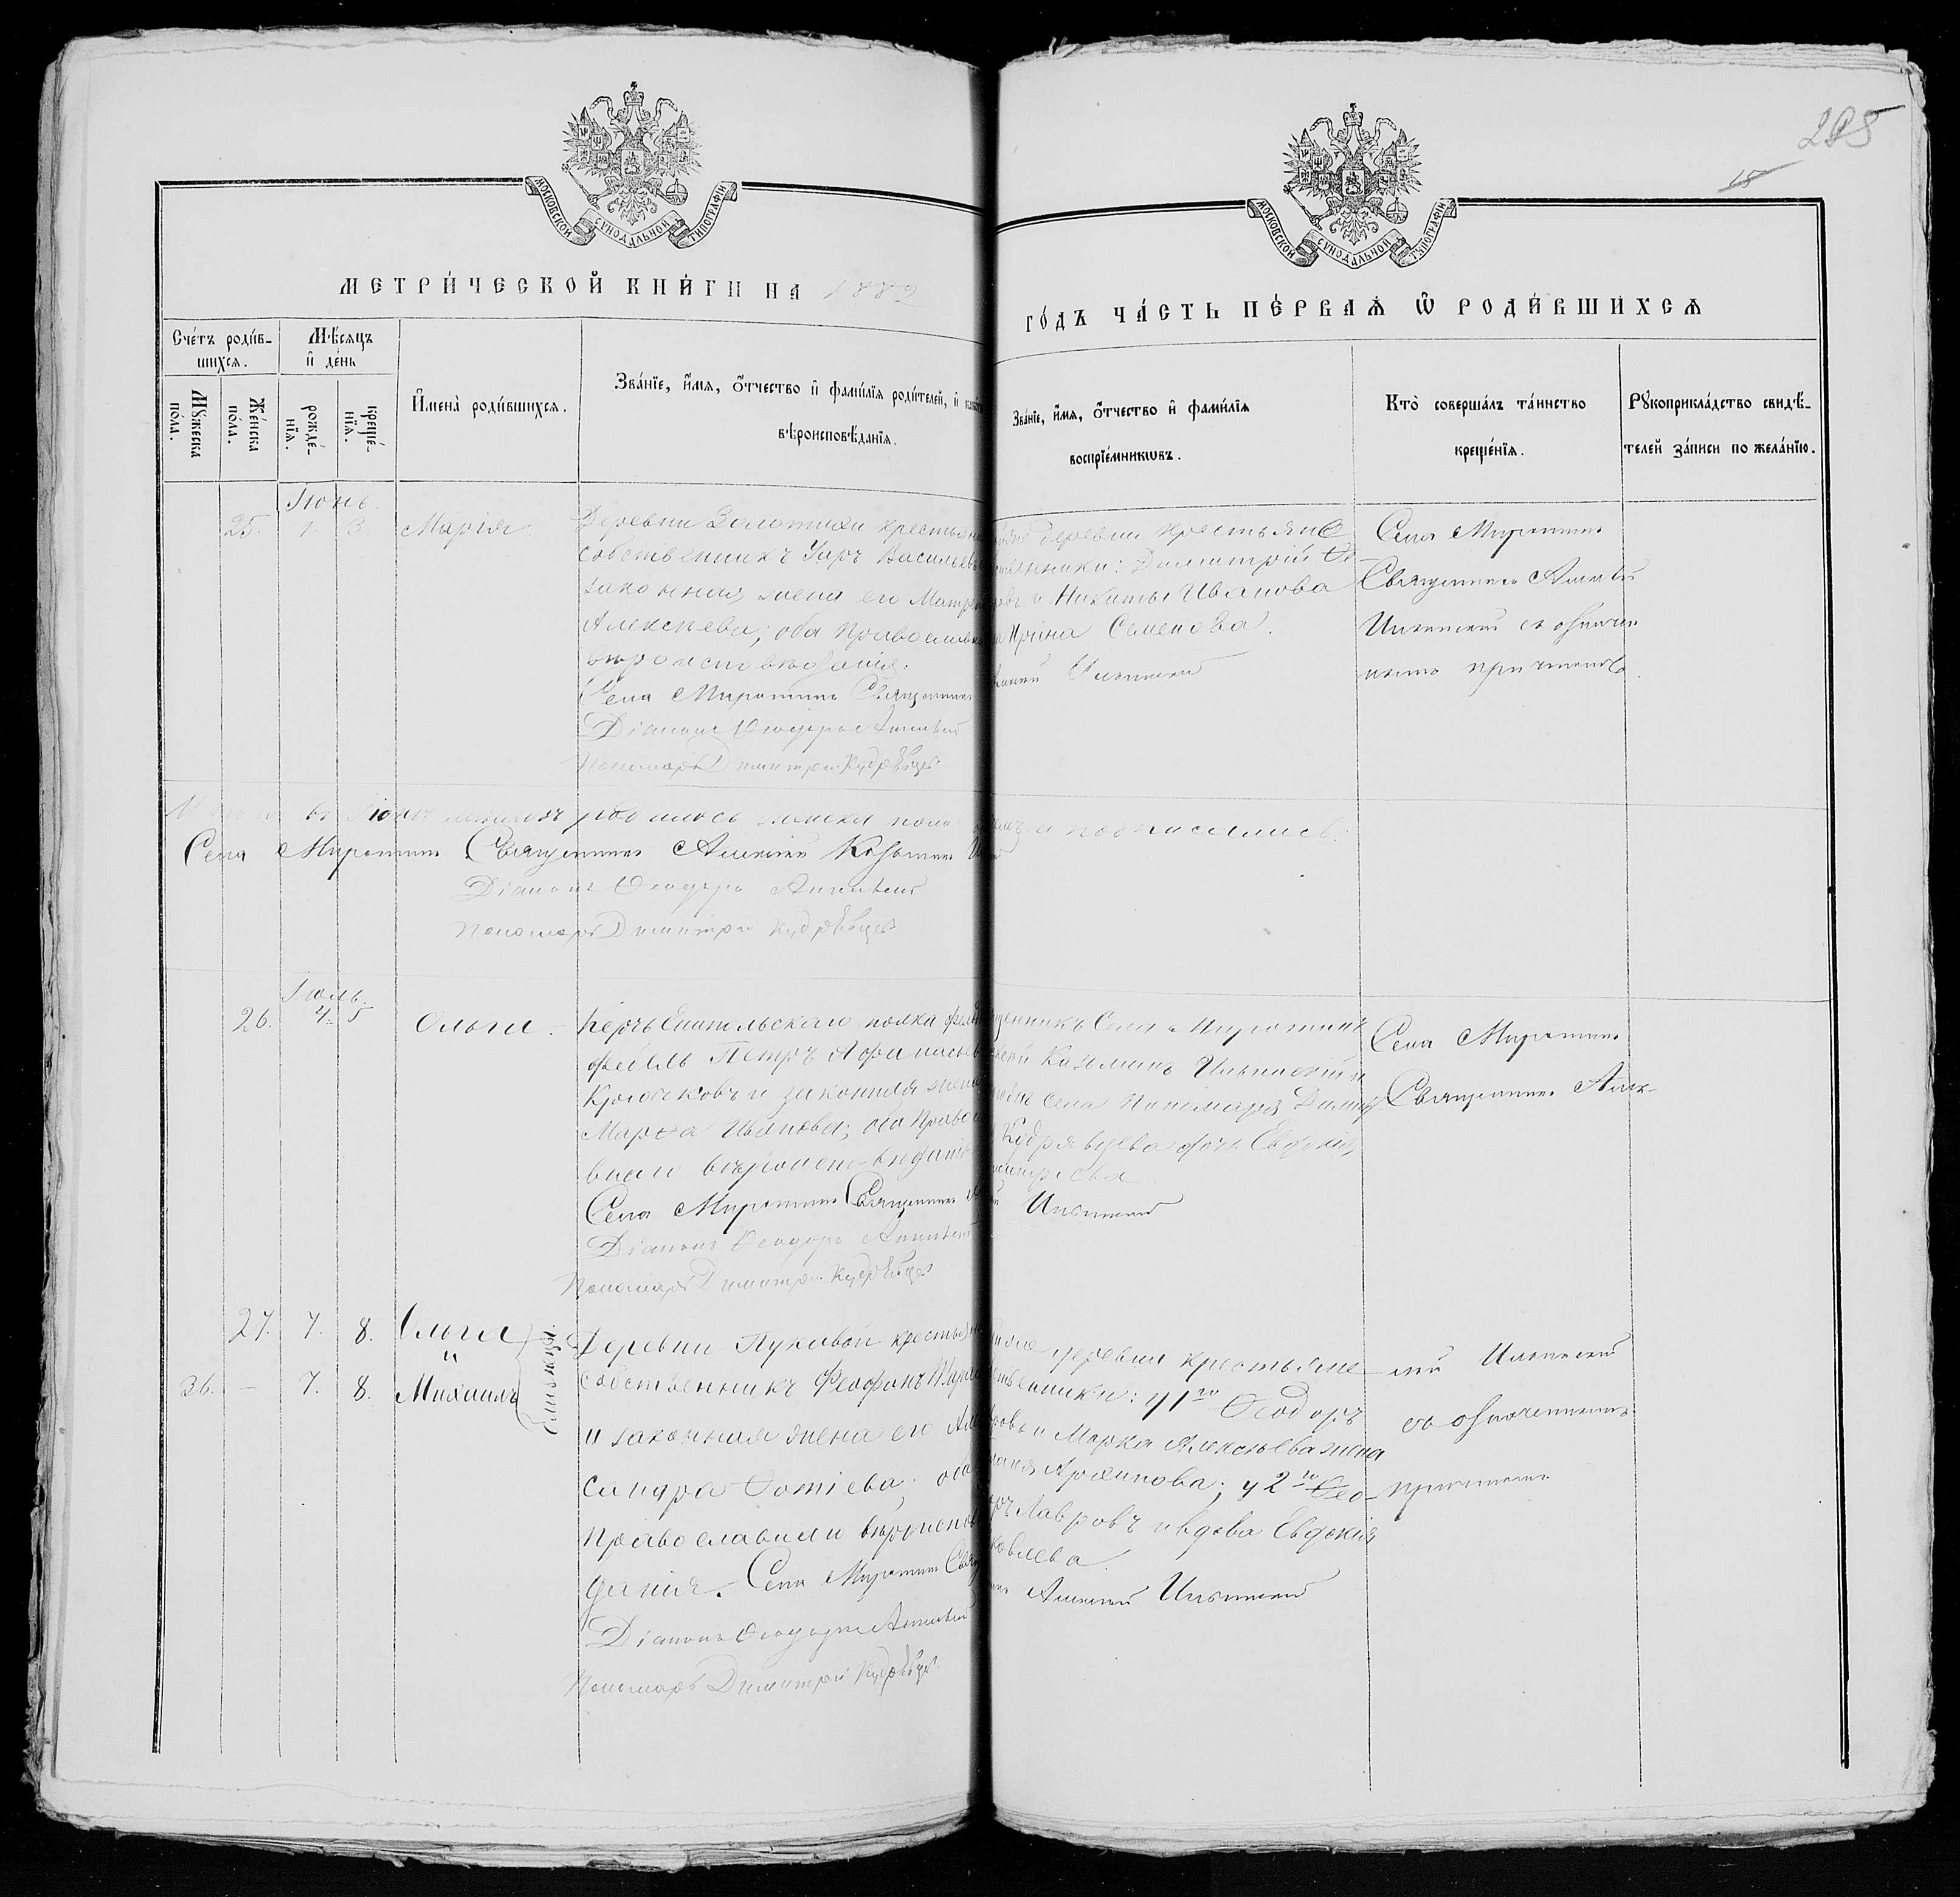 295
15
МОСКОВСКОЙ СѴНОДАЛЬНОЙ ТИПОГРАФІИ
МОСКОВСКОЙ СѴНОДАЛЬНОЙ ТИПОГРАФІИ
МЕТРИ́ЧЕСКОЙ КНИ́ГИ НА 1882
ГО́ДЪ ЧА́СТЬ ПЕ́РВАѦ Ѿ РОДИ́ВШИХСѦ
Сче́тъ роди́в-
шихсѧ.
Мѣ́сѧцъ
и҆ де́нь
Мꙋ́жеска
по́ла.
Же́нска
по́ла.
рожде́-
нїѧ.
креще́-
нїѧ.
И҆мена̀ роди́вшихсѧ.
Зва́нїе, и҆́мѧ, ѻ҆́тчество и҆ фами́лїѧ роди́телей, и҆
вѣроисповѣ́данїѧ.
Зва́нїе, и҆́мѧ, ѻ҆́тчество и҆ фами́лїѧ
воспрїе́мникѡвъ.
Кто̀ соверша́лъ та́инство
креще́нїѧ.
Рꙋкоприкла́дство свидѣ́-
телей за́писи по жела́нїю.
Іюнь
25. 1. 3. Марія
Деревни Золотихи крестьянинъ
собственникъ Уаръ Васильевъ
законная жена его Матрена
Алексѣева; оба Православнаго
вѣроисповѣданія.
Села Миротинъ Священникъ
Діаконъ Ѳеодоръ
Пономарь Димитрій Кудрявцев
деревни крестьяне
Димитрій Ѳе-
и Никиты Иванова
Ирина Семенова.
Ильинскій
Села Миротинъ
Священникъ Алексѣй
Ильинскій съ означен
нымъ причтомъ.
Итого въ Іюнѣ мѣсяцѣ родилось женска пола
и подписались:
Села Миротинъ Священникъ Алексѣй Козьминъ
Діаконъ Ѳеодоръ
Пономарь Димитрій Кудрявцев
Іюль.
26. 4. 5 Ольга.
полка фельд
фебель Петръ Афанасьевъ
Крючковъ и законная жена
Марѳа Иванова; оба Православ
наго вѣроисповѣданія
Села Миротинъ Священникъ
Діаконъ Ѳеодоръ
Пономарь Димитрій Кудрявцев
Села Миротинъ
Козьминъ Ильинскій и
села Пономаря Димит
Кудрявцева дочь Евдокія
Ильинскій
Села Миротинъ
Священникъ Алек-
27. 7. 8. Ольга
и
36. – 7. 8. Михаилъ
близнецы.
Деревни Луковой крестьянинъ
собственникъ Феофанъ
и законная жена его Алек
сандра Фотіева; оба
Православнаго вѣроисповѣ
данія. Села Миротинъ Свящ
Діаконъ Ѳеодоръ
Пономарь Димитрій Кудрявцев
деревни крестьяне
у 1го Ѳеодоръ
и Марка Алексѣева жена
Архипова; у 2го Ѳео-
Лавровъ и вдова Евдокія
Яковлева
Алексѣй Ильинскій
сѣй Ильинскій
съ означеннымъ
причтомъ